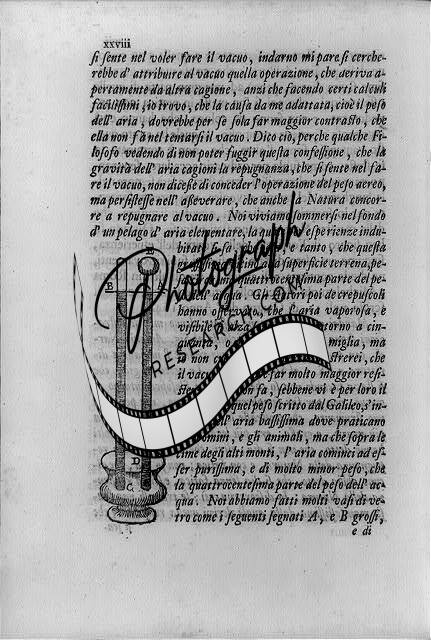 xxviii
si sente nel voler fare il vacuo, indarno mi pare si cerche-
rebbe d' attribuire al vacuo quella operazione, che deriva a-
pertamente da altra cagione, anzi che facendo certi calculi
facilissimi, io trovo, che la causa da me adattata, cioè il peso
dell' aria, dovrebbe per se sola far maggior contrasto, che
ella non fà nel tentarsi il vacuo. Dico ciò, perche qualche Fi-
losofo vedendo di non poter fuggir questa confessione, che la
gravità dell' aria cagioni la repugnanza, che si sente nel fa-
re il vacuo, non dicesse di conceder l' operazione del peso aereo,
ma persistesse nell' asseverare, che anche la Natura concor-
re a repugnare al vacuo. Noi viviamo sommersi nel fondo
d' un pelago d' aria elementare, la quale esperienze indu-
bitate si sa, che pesa, e tanto, che questa
superficie terrena, pe-
quattrocentesima parte del pe-
dell' acqua. Gli Autori poi de crepuscoli
hanno osservato, che l' aria vaporosa, e
visibile intorno a cin-
quanta, o miglia, ma
io non che
il vacuo far molto maggior resi-
non fa, sebbene vi è per loro il
quel peso scritto dal Galileo, s' in-
dell' aria bassissima dove praticano
uomini, e gli animali, ma che sopra le
cime degli alti monti, l' aria cominci ad es-
ser purissima, e di molto minor peso, che
la quattrocentesima parte del peso dell' ac-
qua. Noi abbiamo fatti molti vasi di ve-
tro come i seguenti segnati A, e B grossi,
e di
E
B
A
D
C
Photograph
RESEARCH.COM